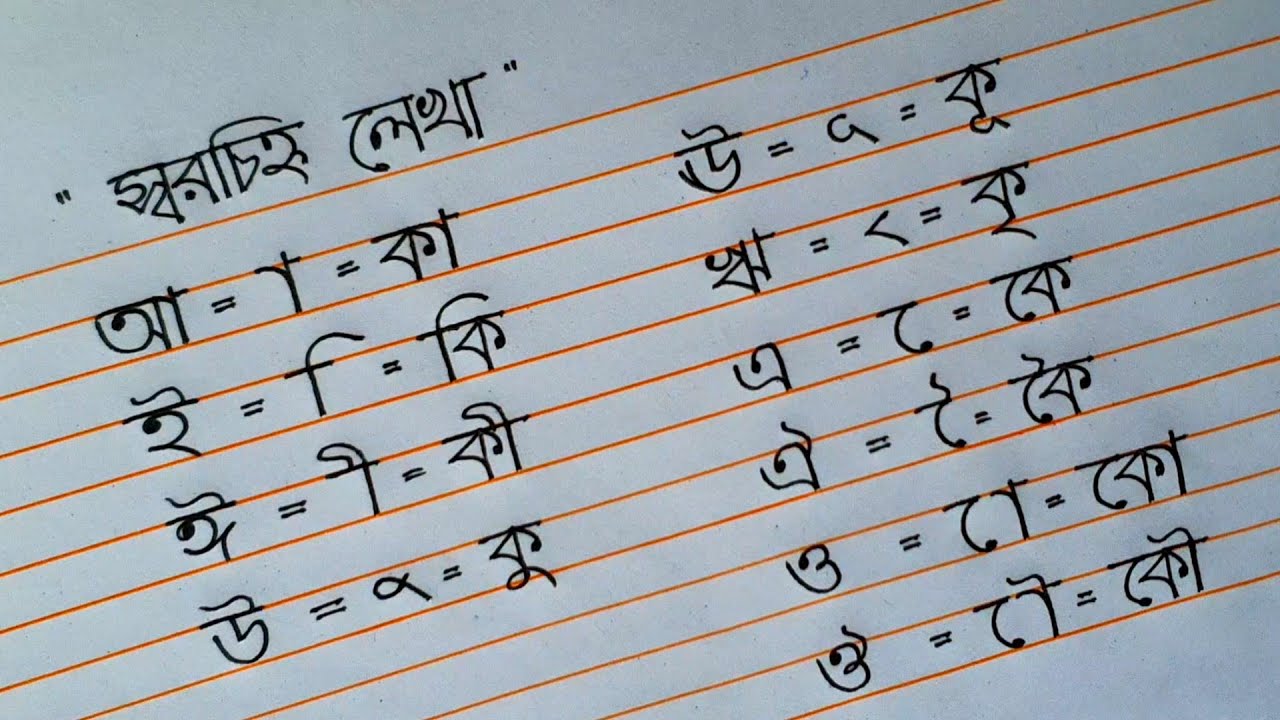 " স্বরচিহ্ন লেখা "
আ = া = কা
ই = ি = কি
ঈ = ী = কী
উ = ু = কু
ঊ = ূ = কূ
ঋ = ৃ = কৃ
এ = ে = কে
ঐ = ৈ = কৈ
ও = ো = কো
ঔ = ৌ = কৌ